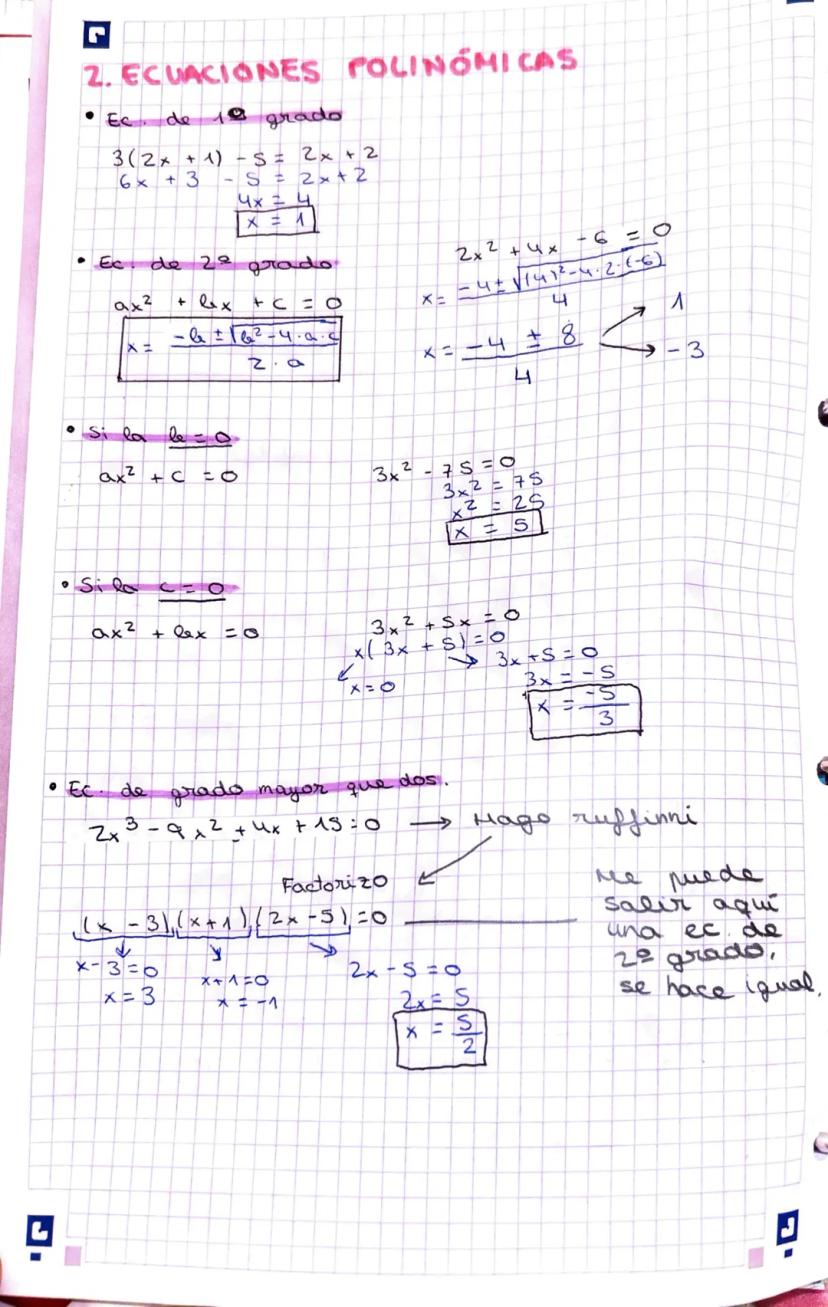 2. ECUACIONES POLINÓMICAS
• Ec. de 1º grado
3(2x + 1) - 5 = 2x + 2
6x + 3 - 5 = 2x + 2
4x = 4
x = 1
• Ec. de 2º grado
ax² + bx + c = 0
x = (-b ± √(b² - 4·a·c)) / (2·a)
2x² + 4x - 6 = 0
x = (-4 ± √((4)² - 4·2·(-6))) / 4
x = (-4 ± 8) / 4
1
-3
• Si la b = 0
ax² + c = 0
3x² - 75 = 0
3x² = 75
x² = 25
x = 5
• Si la c = 0
ax² + bx = 0
3x² + 5x = 0
x(3x + 5) = 0
x = 0
3x + 5 = 0
3x = -5
x = -5/3
• Ec. de grado mayor que dos.
2x³ - 9x² + 4x + 15 = 0 → Hago ruffinni
Factorizo
(x - 3)(x + 1)(2x - 5) = 0
Me puede
salir aquí
una ec. de
2º grado,
se hace igual.
x - 3 = 0
x = 3
x + 1 = 0
x = -1
2x - 5 = 0
2x = 5
x = 5/2